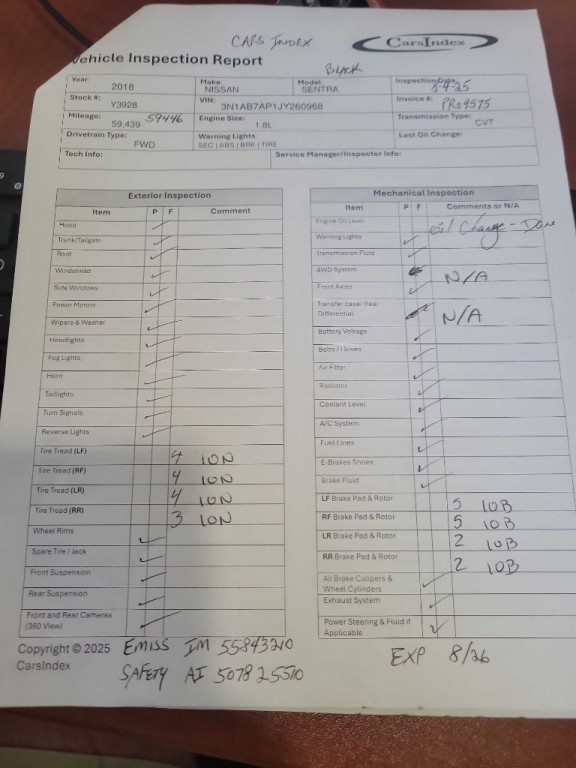 CARS INDEX
CarsIndex
Vehicle Inspection Report
Black
Year: 2018 Make: NISSAN Model: SENTRA Inspection Date: 8-4-25
Stock #: Y3928 VIN: 3N1AB7AP1JY260968 Invoice #: PRO4575
Mileage: 59,439 59446 Engine Size: 1.8L Transmission Type: CVT
Drivetrain Type: FWD Warning Lights SEC | ABS | BRK | TIRE Last Oil Change:
Tech Info: Service Manager/Inspector Info:
Exterior Inspection
Item P F Comment
Hood
Trunk/Tailgate
Roof
Windshield
Side Windows
Power Mirrors
Wipers & Washer
Headlights
Fog Lights
Horn
Taillights
Turn Signals
Reverse Lights
Tire Tread (LF) 4 ION
Tire Tread (RF) 4 ION
Tire Tread (LR) 4 ION
Tire Tread (RR) 3 ION
Wheel Rims
Spare Tire / Jack
Front Suspension
Rear Suspension
Front and Rear Cameras
(360 View)
Mechanical Inspection
Item P F Comments or N/A
Engine Oil Level Oil Change - Done
Warning Lights
Transmission Fluid
4WD System N/A
Front Axles
Transfer case/ Rear
Differential N/A
Battery Voltage
Belts / Hoses
Air Filter
Radiator
Coolant Level
A/C System
Fuel Lines
E-Brakes Shoes
Brake Fluid
LF Brake Pad & Rotor 5 10B
RF Brake Pad & Rotor 5 10B
LR Brake Pad & Rotor 2 10B
RR Brake Pad & Rotor 2 10B
All Brake Calipers &
Wheel Cylinders
Exhaust System
Power Steering & Fluid if
Applicable
Copyright © 2025 EMISS IM 55843210
CarsIndex
SAFETY AI 507825510
EXP 8/26